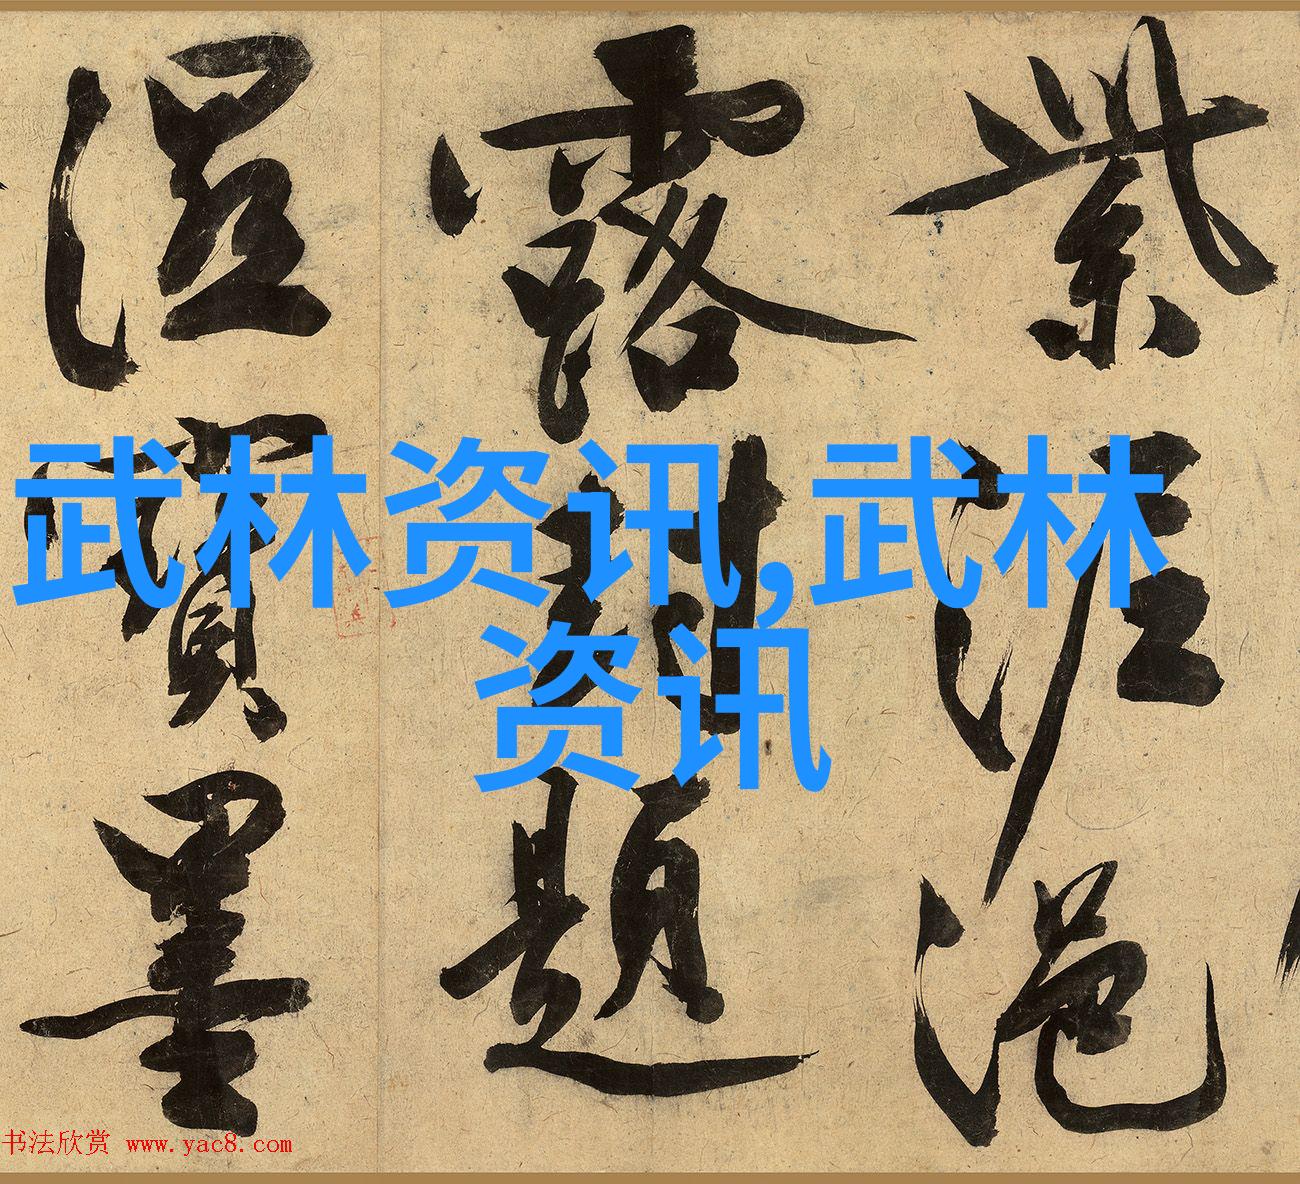 紫泥浥
露封題
濕寶墨
武林资讯,武林
资讯
书法欣赏 www.yac8.com